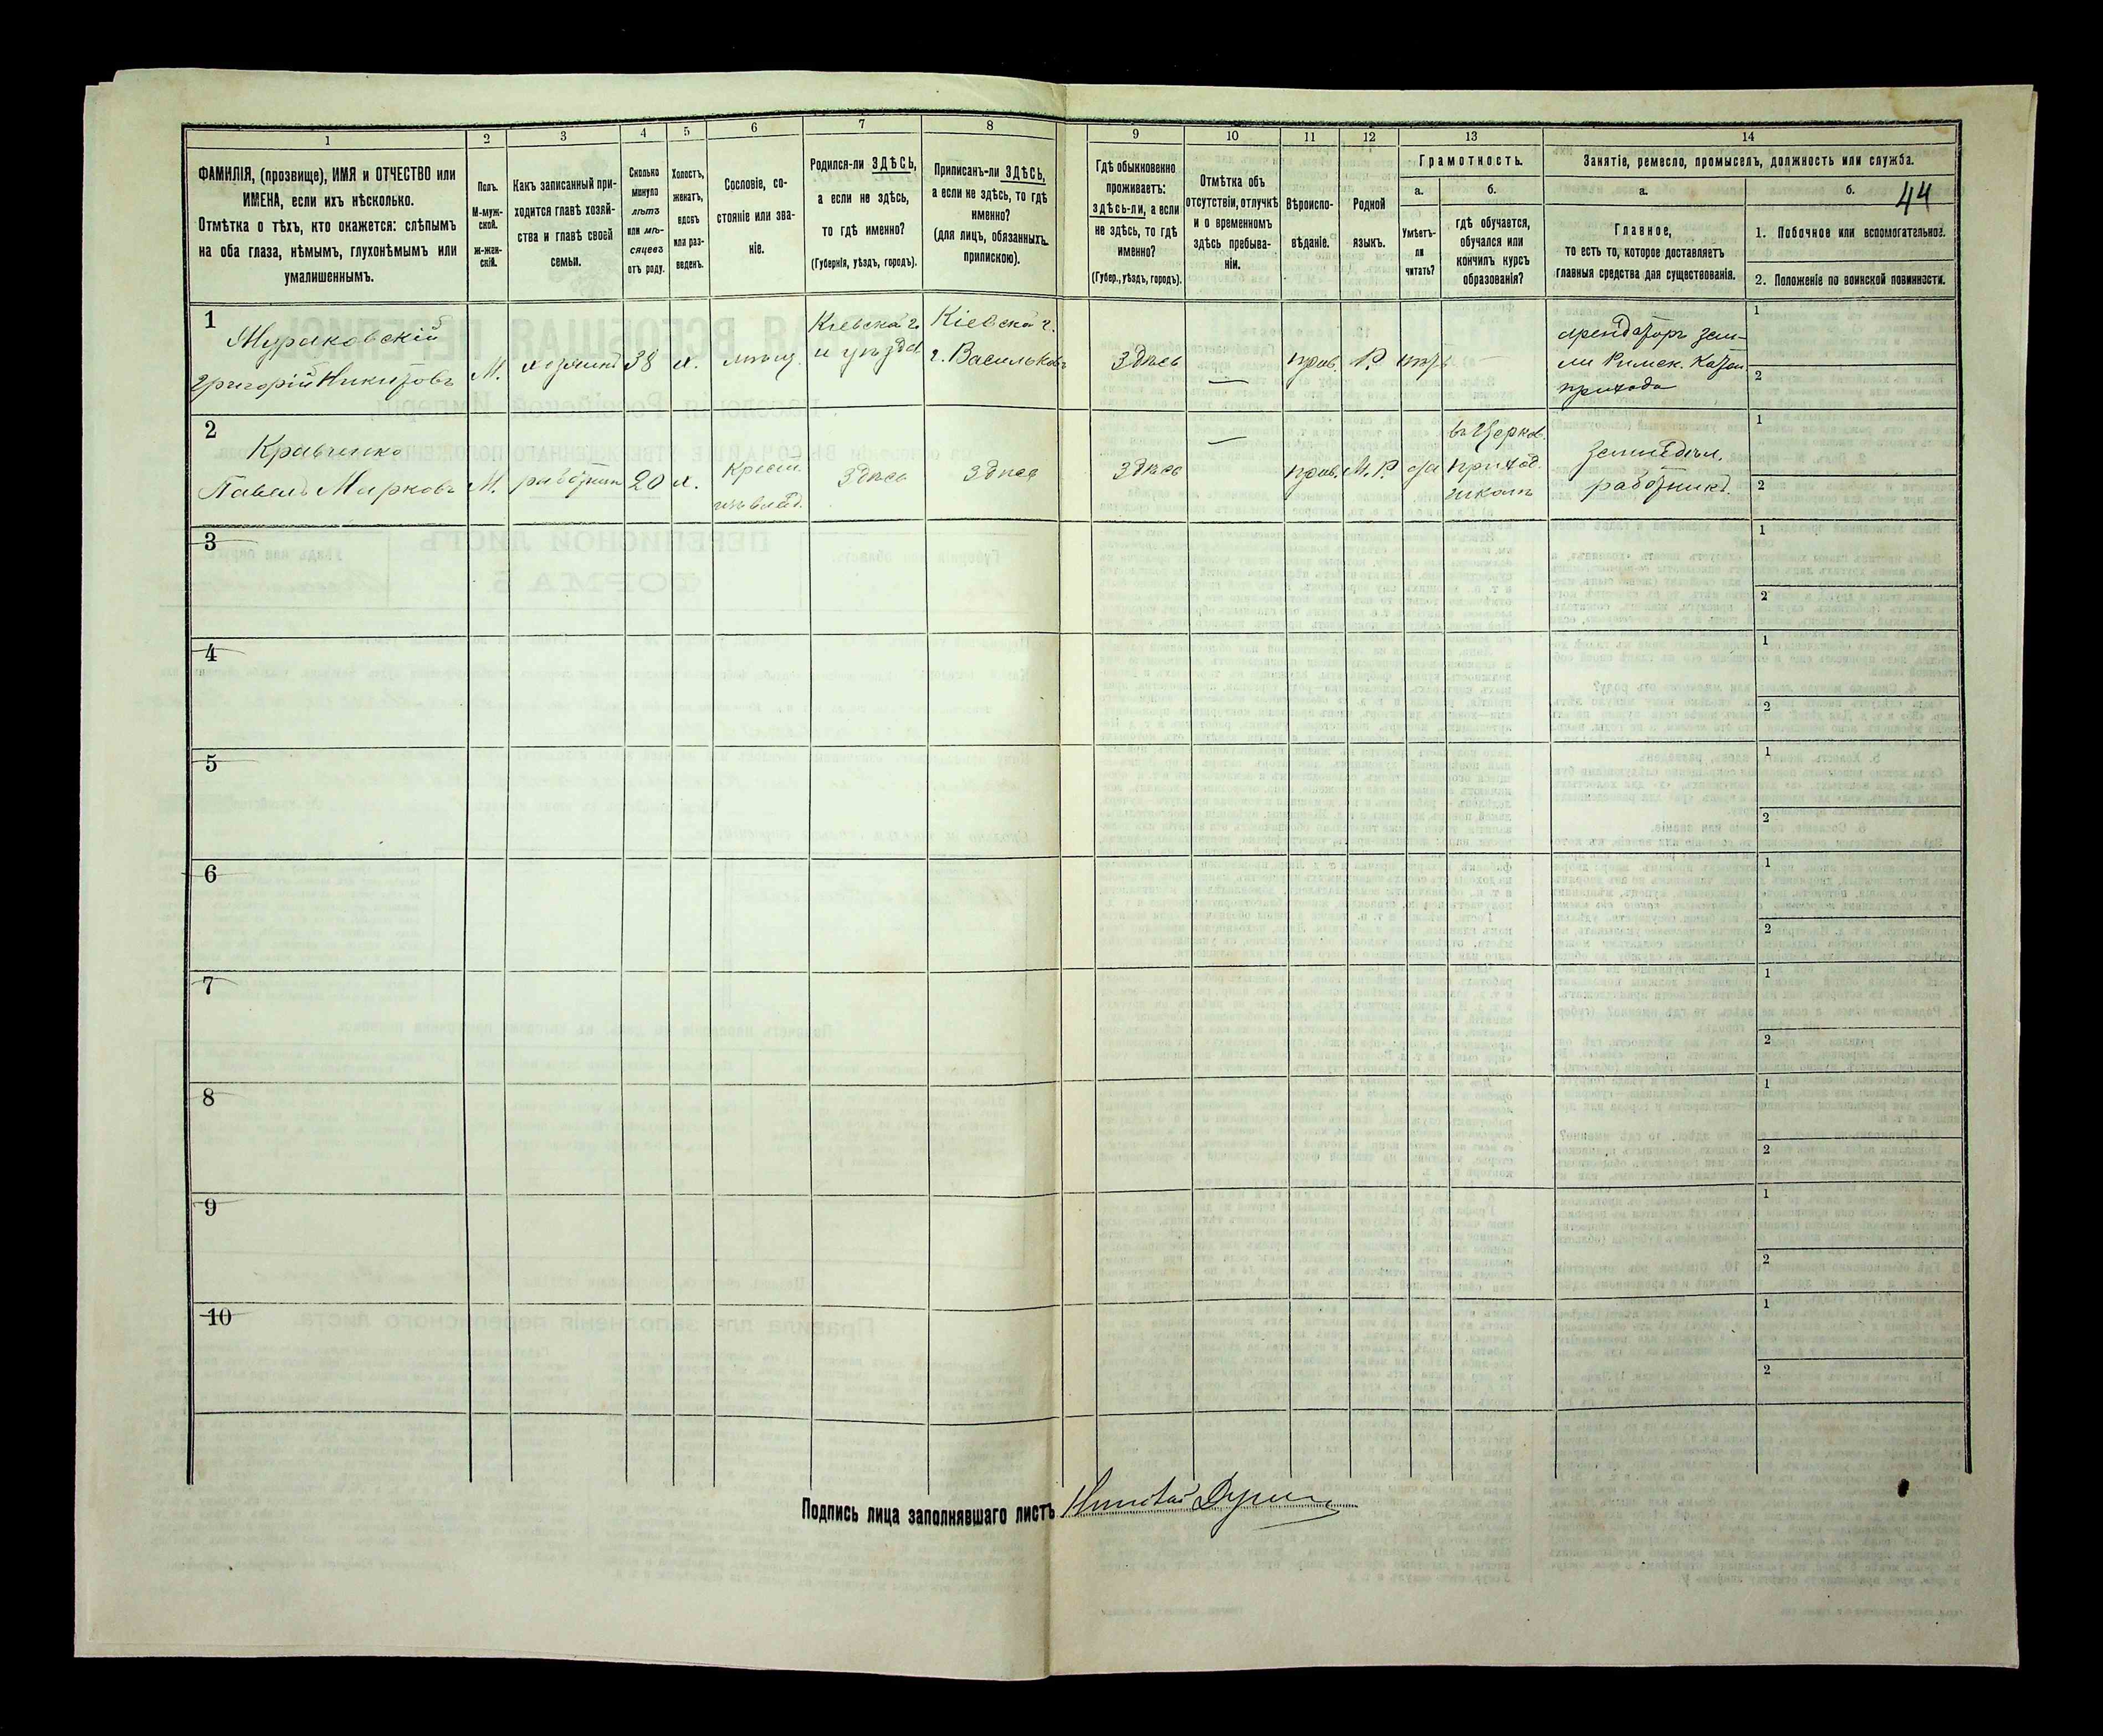 1 2 3 4 5 6 7 8 9 10 11 12 13 14
ФАМИЛІЯ, (прозвище), ИМЯ и ОТЧЕСТВО или
ИМЕНА, если ихъ нѣсколько.
Отмѣтка о тѣхъ, кто окажется: слѣпымъ
на оба глаза, нѣмымъ, глухонѣмымъ или
умалишеннымъ.
Полъ.
М-муж-
ской.
ж-жен-
скій.
Какъ записанный при-
ходится главѣ хозяй-
ства и главѣ своей
семьи.
Сколько
минуло
лѣтъ
или мѣ-
сяцевъ
отъ роду.
Холостъ,
женатъ,
вдовъ
или раз-
веденъ.
Сословіе, со-
стояніе или зва-
ніе.
Родился-ли ЗДѢСЬ,
а если не здѣсь,
то гдѣ именно?
(Губернія, уѣздъ, городъ).
Приписанъ-ли ЗДѢСЬ,
а если не здѣсь, то гдѣ
именно?
(для лицъ, обязанныхъ
припискою).
Гдѣ обыкновенно
проживаетъ:
здѣсь-ли, а если
не здѣсь, то гдѣ
именно?
(Губер., уѣздъ, городъ).
Отмѣтка объ
отсутствіи, отлучкѣ
и о временномъ
здѣсь пребыва-
ніи.
Вѣроиспо-
вѣданіе.
Родной
языкъ.
Грамотность.
а.
Умѣетъ-
ли
читать?
б.
гдѣ обучается,
обучался или
кончилъ курсъ
образованія?
Занятіе, ремесло, промыселъ, должность или служба.
а.
Главное,
то есть то, которое доставляетъ
главныя средства для существованія.
б. 44
1. Побочное или вспомогательное.
2. Положеніе по воинской повинности.
1
Мураковскій
Григорій Никитовъ
М.
хозяинъ
38
х.
мѣщ.
Кіевска г.
и уѣзда
Кіевска г.
г. Васильковъ
Здѣсь
—
прав.
Р.
нѣтъ
—
арендаторъ зем-
ли Римск. Катол
прихода
1
2
2
Кравченко
Павелъ Марковъ
М.
работник
20
х.
Крест.
изъ влад.
Здѣсь
Здѣсь
Здѣсь
—
прав.
М. Р.
да
въ Церков.
приход.
школѣ
земледѣл.
работникъ
1
2
3
1
2
4
1
2
5
1
2
6
1
2
7
1
2
8
1
2
9
1
2
10
1
2
Подпись лица заполнявшаго листъ